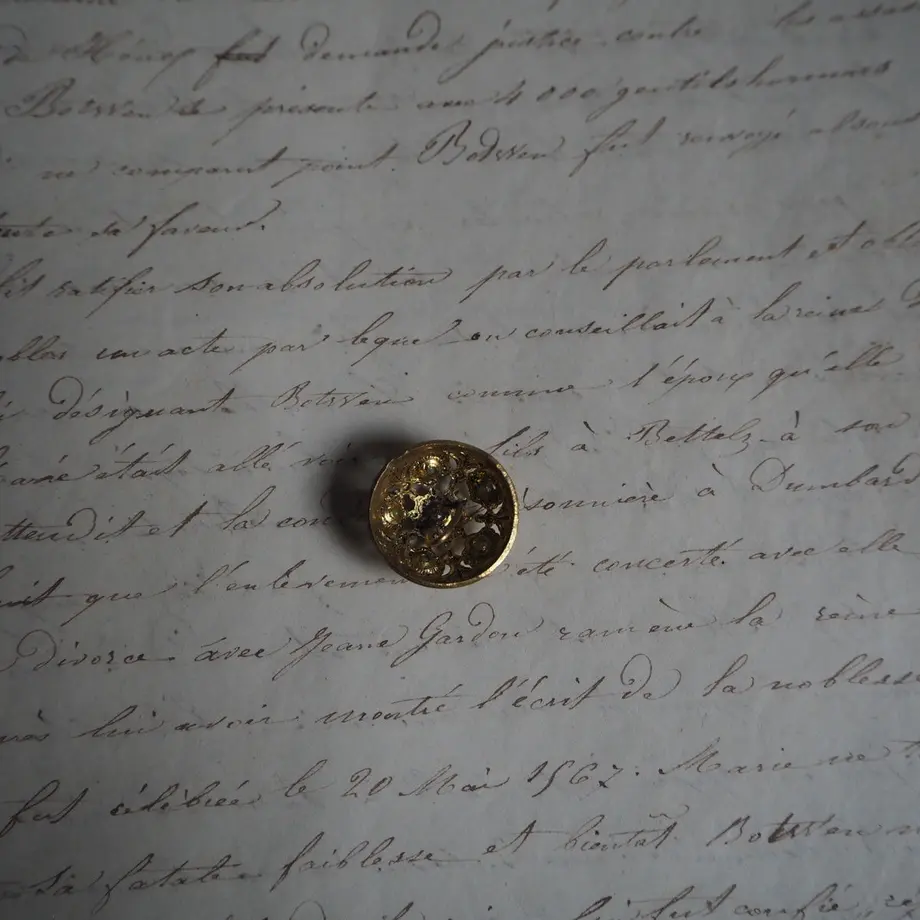 de Henry fut demande justice contre les
Botwen se présente avec 4 000 gentilshommes
ne comparut point. Botwen fut renvoyé absous
sa faveur.
fit ratifier son absolution par le parlement et
un acte par lequel on conseillait à la reine
désignant Botwen comme l'époux qu'elle
était allé voir fils à à son
attendit et la sonnière à Dumbar
que l'enlèvement été concerté avec elle
divorce avec Jeane Gardon ramène la reine
lui avoir montré l'écrit de la noblesse
fut célébrée le 20 Mai 1567. Marie ne
sa fatale faiblesse et bientôt Botwen
fut confié